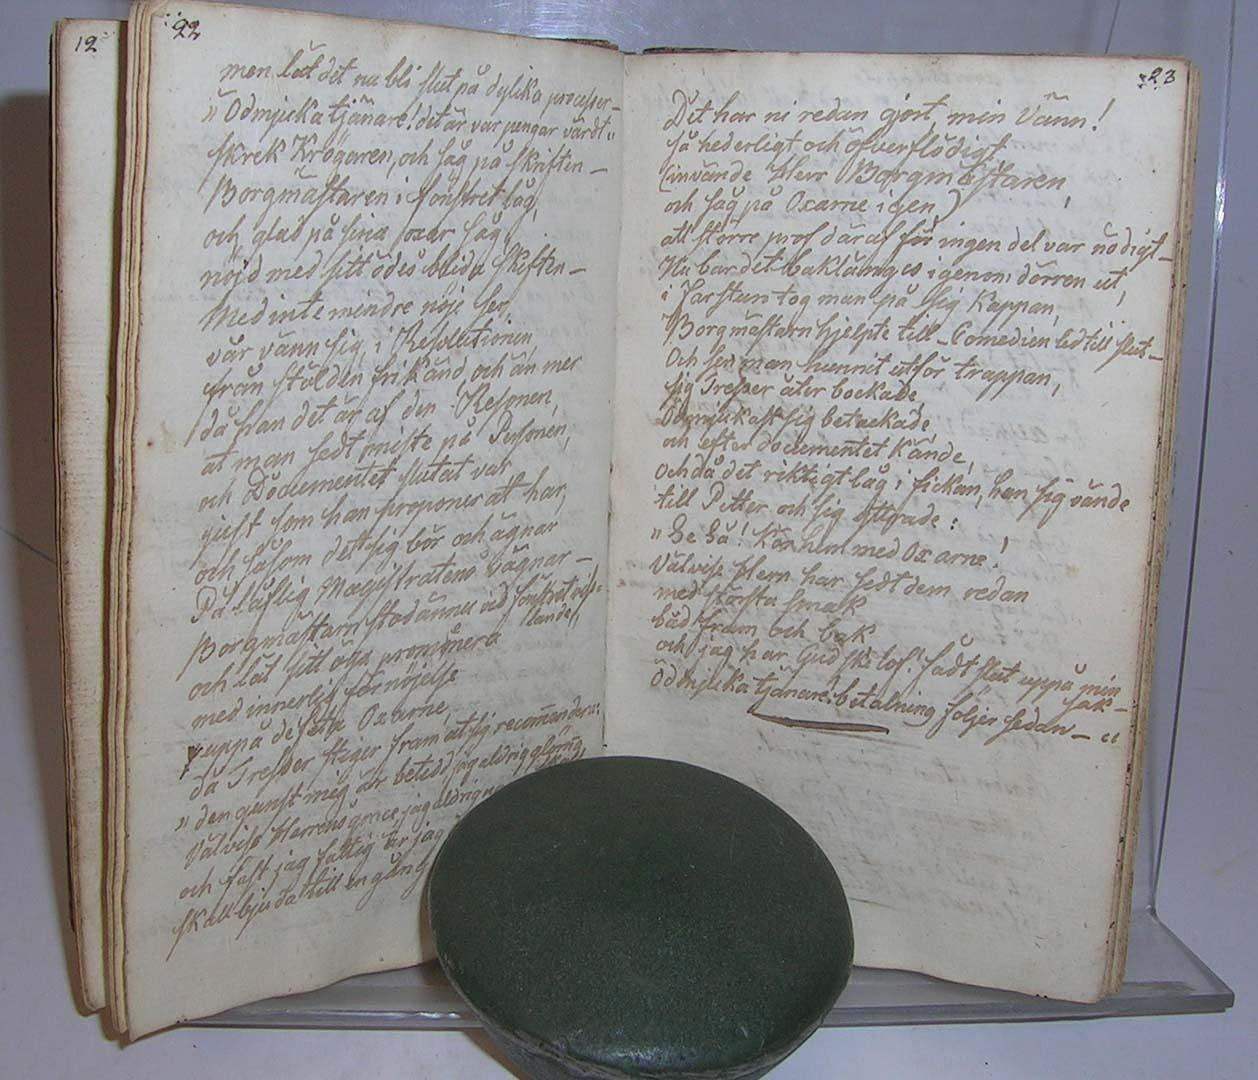 12
22
men låt det nu bli slut på dylika processer—
"Ödmjuka tjänare! det är var pengar värdt"
skrek Krögaren, och såg på skriften—
Borgmästaren i fönstret låg,
och glad på sina oxar såg,
nöjd med sitt ödes blida skiften—
Med inte mindre nöje ser,
vår vänn sig i Resolutionen
från stölden frikänd, och än mer
då han det är af den Resonen,
at man sedt miste på Personen,
och Documentet slutat var
just som han proponerat har,
och såsom dett sig bör och ägnar
På laflig Magistratens vägnar—
Borgmästarn stod ännu vid fönstret vis-
lande,
och lät sitt öga promenera
med innerlig förnöjelse
uppå de feta Oxarne,
då Tresser steger fram at sig recommendera:
"den gunst mig är betedd, jag aldrig glömma
Välvise Herrens gunce jag aldrig
och fast jag fattig är jag
skall bjuda till en gång
23
Det har ni redan gjort, min Vänn!
så hederligt och öfverflödigt
(invände Herr Borgmästaren,
och såg på Oxarne igen)
att större prof däraf för ingen del var nödigt—
Nu bar det baklänges igenom dörren ut,
i Farstun tog man på sig Kappan,
Borgmästarn hjelpte till— Comedien led till slut—
Och sen man hunnit utför trappan,
sig Tresser åter bockade,
Ödmjukast sig betackade,
och efter documentet kände,
och då det riktigt låg i fickan, han sig vände
till Petter och sig yttrade:
"Se Så! Kör hem med Oxarne!
Välvise Herrn har sedt dem redan
med största smak
båd fram och bak
och jag har Gud ske lof! fådt slut uppå min
sak—
Ödmjuka tjänare: betalning följer sedan—"